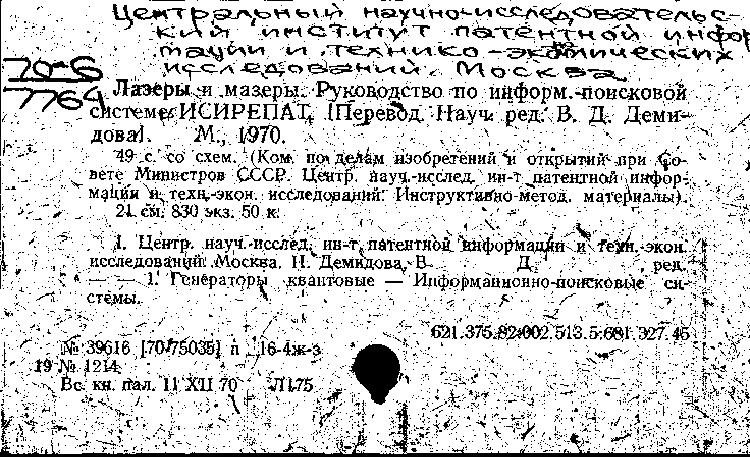 Центральный научно-исследовательс-
кий институт патентной инфор
мации и технико-экономических
исследований. Москва
70-5
7764
Лазеры и мазеры. Руководство по информ.-поисковой
системе ИСИРЕПАТ. [Перевод. Науч. ред. В. Д. Деми-
дова]. М., 1970.
49 с. со схем. (Ком. по делам изобретений и открытий при Со-
вете Министров СССР. Центр. науч.-исслед. ин-т патентной инфор-
мации и техн.-экон. исследований. Инструктивно-метод. материалы).
21 см. 830 экз. 50 к.
I. Центр. науч.-исслед. ин-т патентной информации и техн.-экон.
исследований. Москва. II. Демидова, В. Д. ред.
— — 1. Генераторы квантовые — Информационно-поисковые си-
стемы.
621.375.82:002.513.5:681.327.45
№ 39616 [70-75035] п 16-4ж-3
19 № 1214
Вс. кн. пал. 11 XII 70 Л175